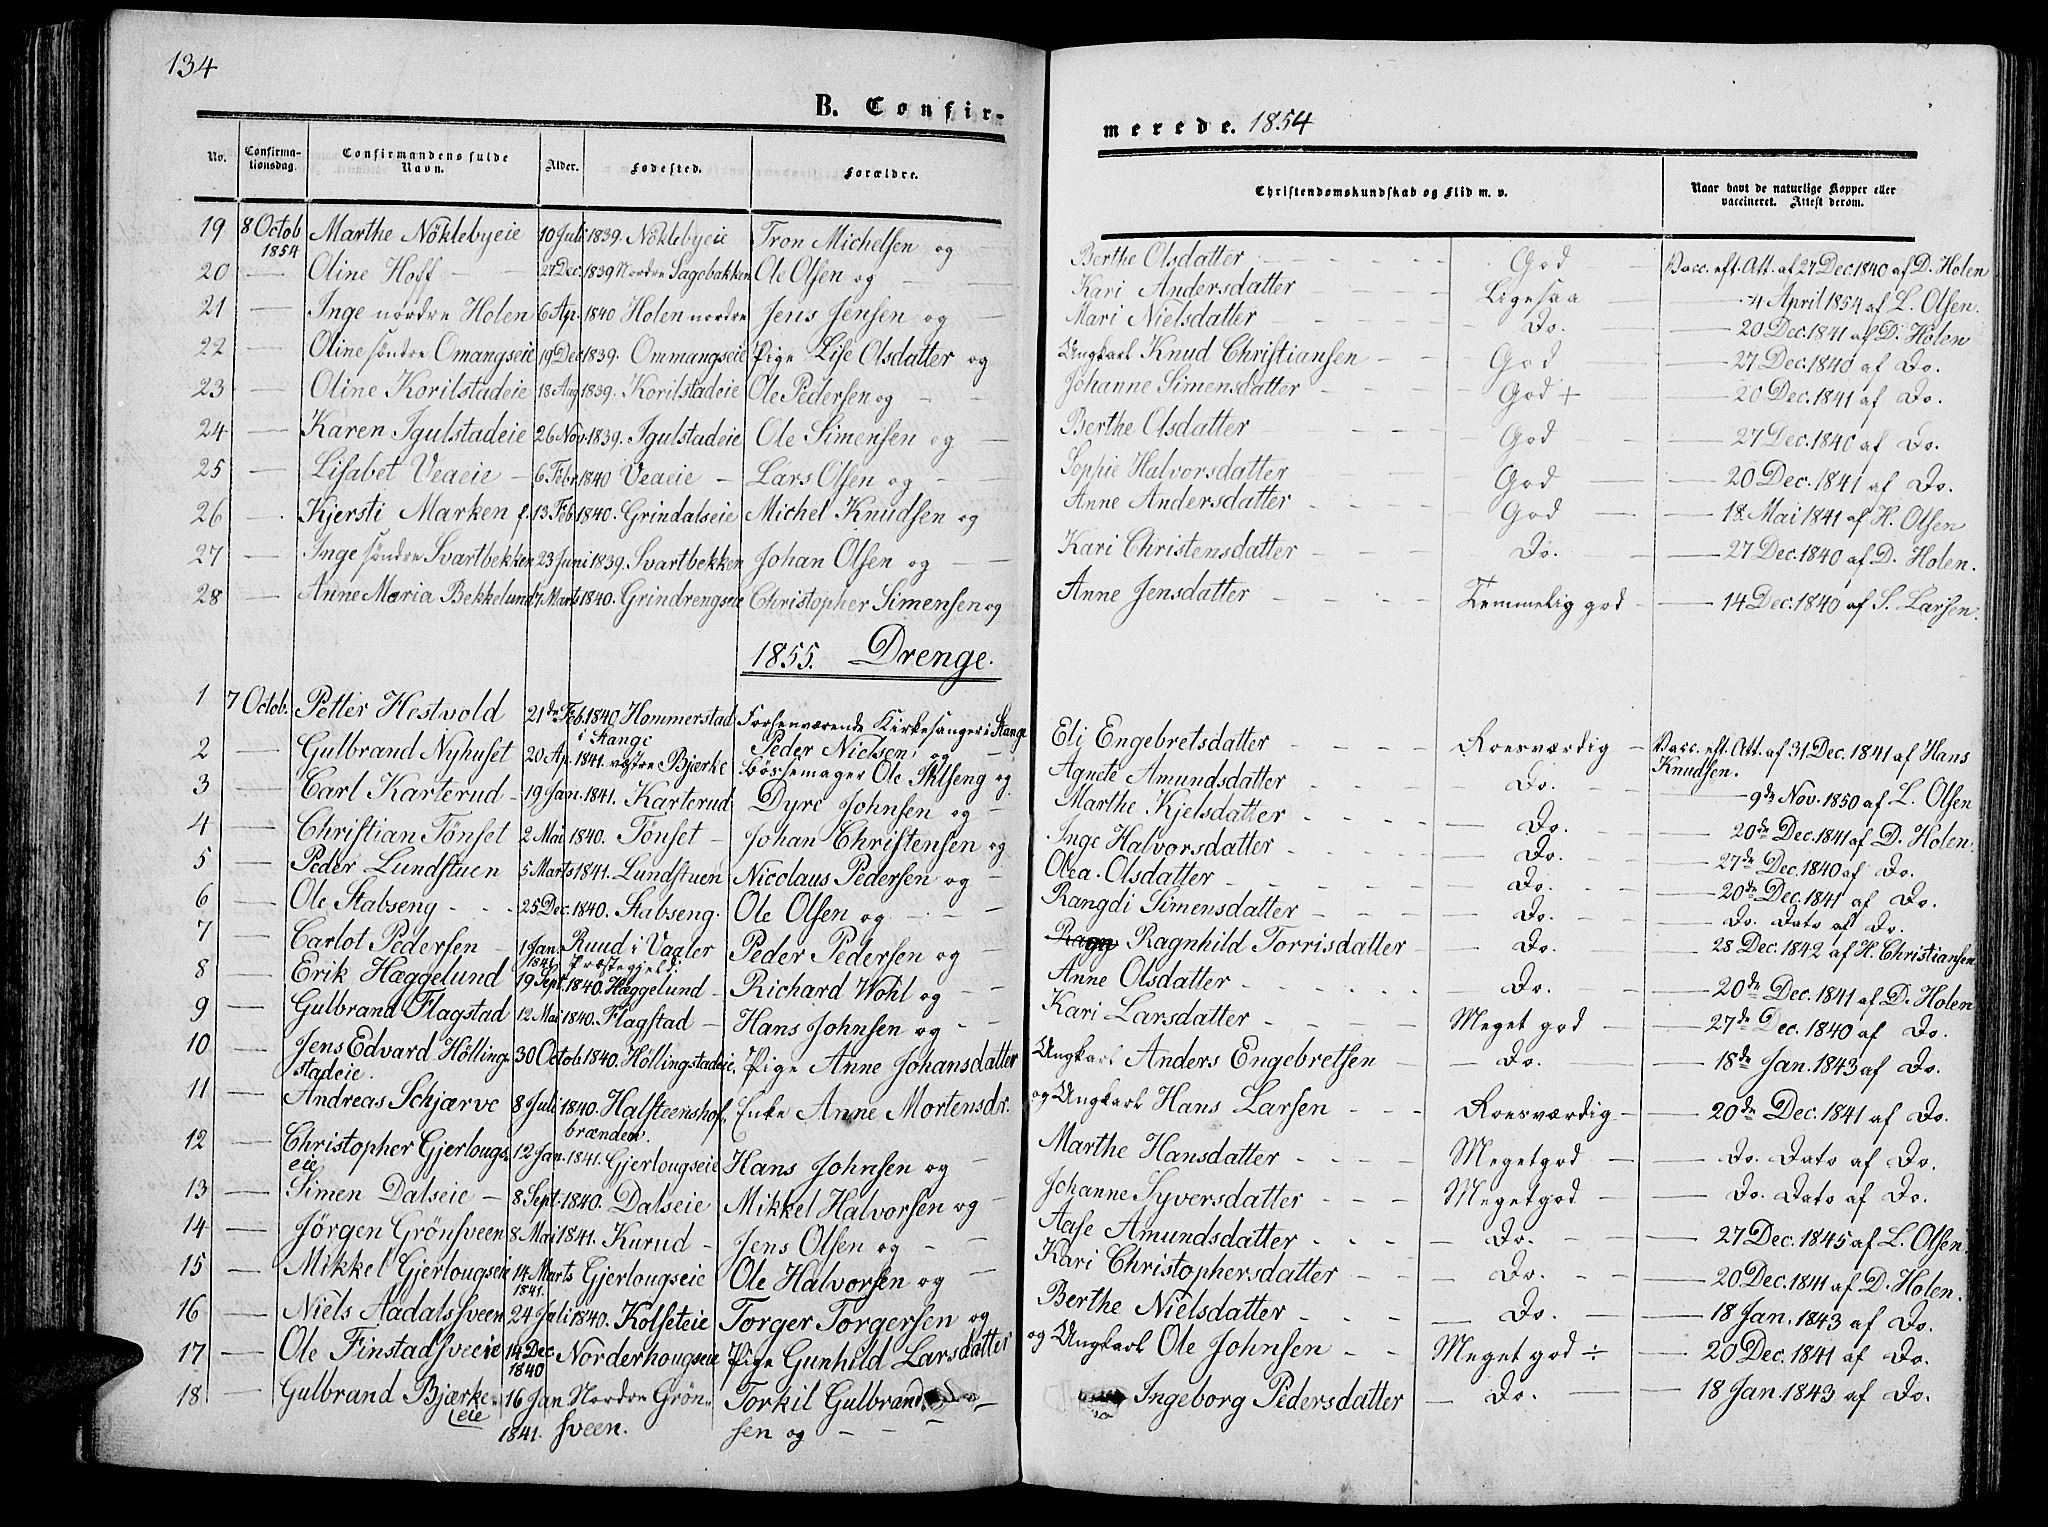 134
B. Confir-
merede. 1854
No. Confirma-tionsdag. Confirmandens fulde Navn. Alder. Fødested. Forældre. Christendomskundskab og Flid m. v. Naar havt de naturlige Kopper eller vaccineret. Attest derom.
19 8 Octob 1854 Marthe Nöklebyeie 10 Juli 1839. Nöklebyeie Tron Michelsen og Berthe Olsdatter God Vacc. eft. Att. af 27 Dec. 1840 af D. Holen
20 — Oline Hoff — 27 Dec. 1839 Nordre Sagebakken Ole Olsen og Kari Andersdatter Ligesaa — 4 April 1854 af L. Olsen.
21 — Inge nordre Holen 6 Ap. 1840 Holen nordre Jens Jensen og Mari Nielsdatter Do. — 20 Dec. 1841 af D. Holen
22 — Oline söndre Omangseie 19 Dec 1839. Ommangseie Pige Lise Olsdatter og Ungkarl Knud Christiansen God — 27 Dec. 1840 af Do.
23 — Oline Korilstadeie 18 Aug 1839. Korilstadeie Ole Pedersen og Johanne Simensdatter God + — 20 Dec. 1841 af Do.
24 — Karen Igulstadeie 26 Nov. 1839. Igulstadeie Ole Simensen og Berthe Olsdatter God — 27 Dec. 1840 af Do.
25 — Lisabet Veaeie — 6 Febr 1840 Veaeie — Lars Olsen og Sophie Halvorsdatter God — 20 Dec. 1841 af Do.
26 — Kjersti Marken f. 13 Feb 1840. Grindalseie Michel Knudsen og Anne Andersdatter God — 18 Mai 1841 af H. Olsen
27 — Inge söndre Svartbekken 23 Juni 1839. Svartbekken Johan Olsen og Kari Christensdatter Do. — 27 Dec. 1840 af D. Holen.
28 — Anne Maria Bekkelund 7 Marts 1840. Grindrengseie Christopher Simensen og Anne Jensdatter Temmelig god — 14 Dec. 1840 af S. Larsen.
1855. Drenge.
1 7 Octob. Petter Hestvold 21de Feb. 1840 Hommerstad i Stange Forhenværende Kirkesanger i Stange Peder Nielsen og Eli Engebretsdatter Roesværdig — Vacc. eft. Att. af 31 Dec. 1841 af Hans Knudsen.
2 — Gulbrand Nyhuset 20 Ap. 1841. vestre Bjerke Bössemager Ole Ihlseng og Agnete Amundsdatter Do. — 9de Nov. 1850 af L. Olsen
3 — Carl Karterud — 19 Jan. 1841. Karterud Dyre Johnsen og Marthe Kjelsdatter Do. — 20de Dec. 1841 af D. Holen.
4 — Christian Tönset 2 Mai 1840. Tönset — Johan Christensen og Inge Halvorsdatter Do. — 27de Dec. 1840 af Do.
5 — Peder Lundstuen 5 Marts 1841. Lundstuen Nicolaus Pedersen og Olea Olsdatter Do. — 20de Dec. 1841 af Do.
6 — Ole Stabseng 25 Dec. 1840. Stabseng. Ole Olsen og Rangdi Simensdatter Do. — Do. Dato af Do.
7 — Carlot Pedersen — 1 Jan. 1841. Ruud i Vagler Præstegjeld: Peder Pedersen og Ragnhild Torrisdatter Do. — 28 Dec. 1842 af H. Christiansen
8 — Erik Hæggelund 19 Sept 1840. Hæggelund — Richard Wohl og Anne Olsdatter Do. — 20de Dec. 1841 af D. Holen
9 — Gulbrand Flagstad 12 Mai 1840. Flagstad — Hans Johnsen og Kari Larsdatter Meget god — 27de Dec. 1840 af Do.
10 — Jens Edvard Höllingstadeie. 30 Octob. 1840. Höllingstadeie. Pige Anne Johansdatter Ungkarl Anders Engebretsen Do. — 18de Jan. 1843 af Do.
11 — Andreas Schjærve 8 Juli 1840. Halsteenshofbrænden. Enke Anne Mortensdr. og Ungkarl Hans Larsen Roesværdig — 20de Dec. 1841 af Do.
12 — Christopher Gjerlougseie 12 Jan. 1841. Gjerlougseie Hans Johnsen og Marthe Hansdatter Megetgod — Do. Dato af Do.
13 — Simen Dalseie — 8 Sept. 1840. Dalseie Mikkel Halvorsen og Johanne Syversdatter Megetgod — Do. Dato af Do.
14 — Jörgen Grönsveen 8 Mai 1841. Kurud — Jens Olsen og Aase Amundsdatter Do. — 27 Dec. 1845 af L. Olsen.
15 — Mikkel Gjerlougseie 14 Marts 1841. Gjerlougseie Ole Halvorsen og Kari Christophersdatter Do. — 20 Dec. 1841 af D. Holen.
16 — Niels Aadalssveen 24 Juli 1840. Kolseteie Torger Torgersen og Berthe Nielsdatter Do. — 18 Jan. 1843 af Do.
17 — Ole Finstadsveeie 14 Dec. 1840 Norderhougseie Pige Gunhild Larsdatter og Ungkarl Ole Johnsen Meget god ÷ — 20 Dec. 1841 af Do.
18 — Gulbrand Bjærkeeie 16 Jan 1841. Nordre Grönsveen. Torkil Gulbrandsen og Ingeborg Pedersdatter Do. — 18 Jan. 1843 af Do.